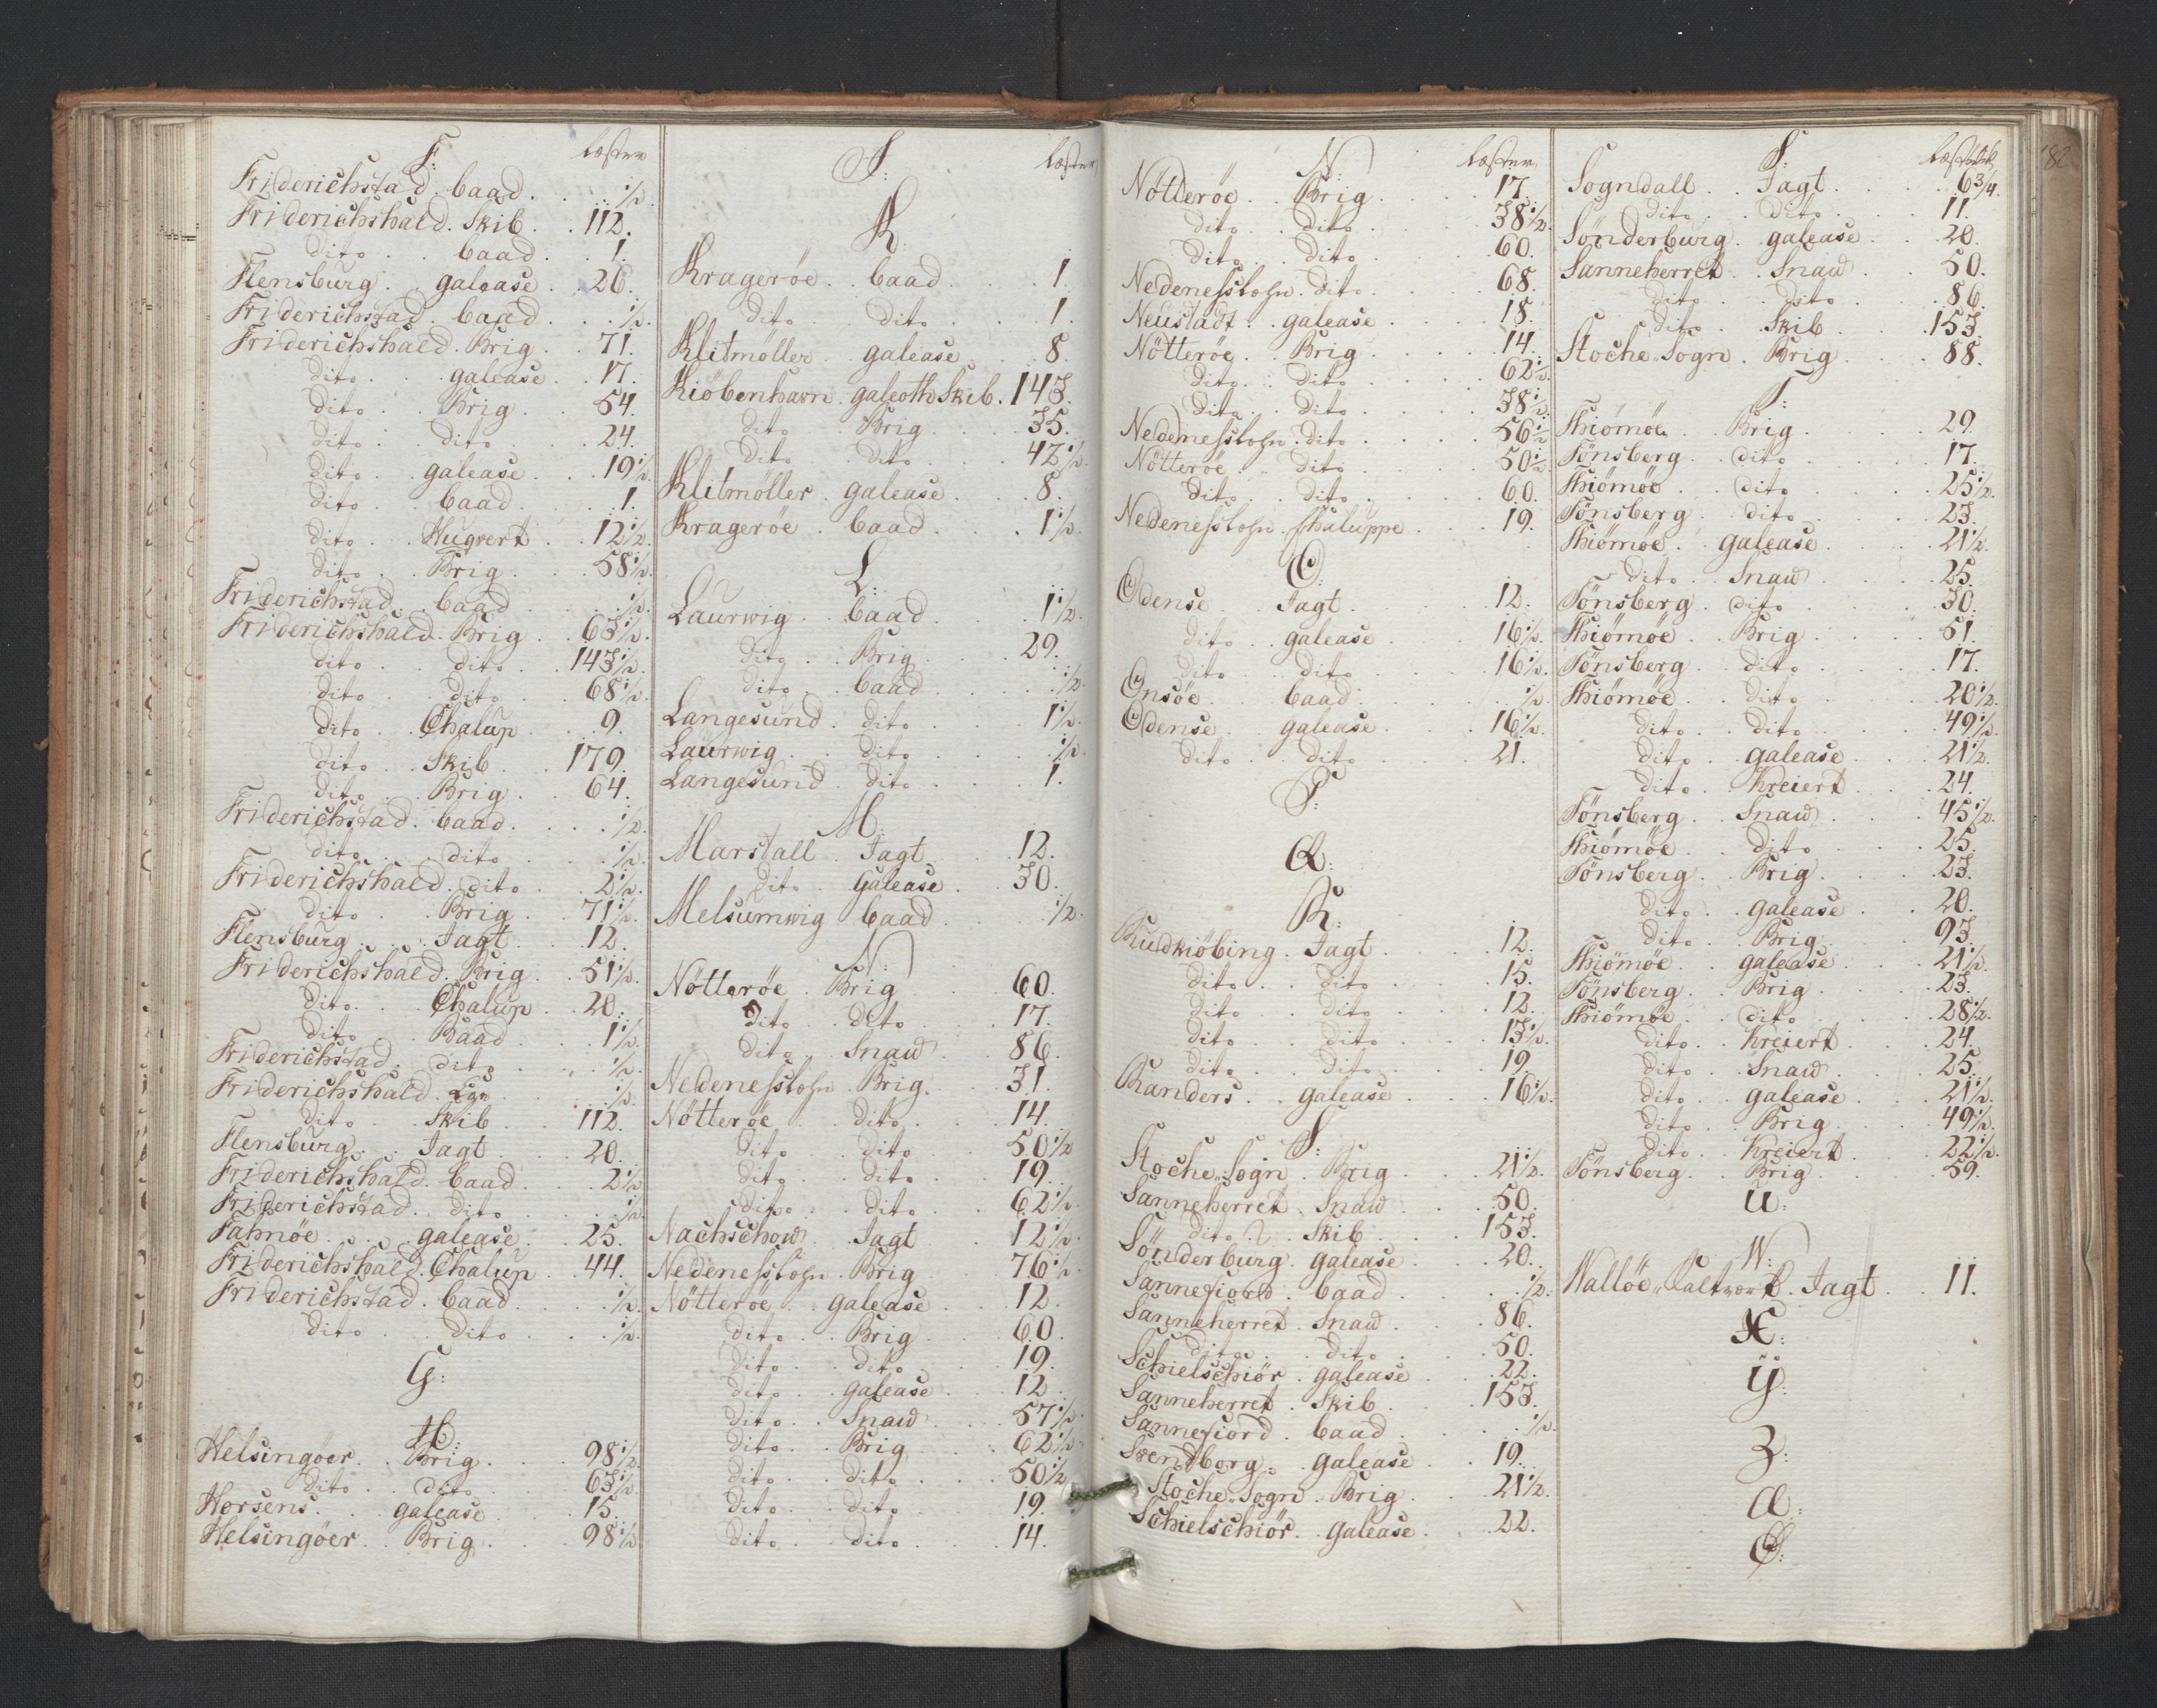 F: Læster
Friderichstad. baad. . . . ½.
Friderichshald. Skib. . 112.
dito . . baad. . 1.
Flensburg. . galease. . 26.
Friderichstad. baad. . . ½.
Friderichshald. Brig. . 71.
dito. . . galease. . 17.
dito. . . Brig. . 54.
dito. . . dito . . 24.
dito. . . galease. . 19½.
dito. . . baad. . . 1.
dito. . . Hugvert. . 12½.
dito. . . Brig. . . 58½.
Friderichstad. . baad. . . ½.
Friderichshald. Brig. . 63½.
dito. . . dito. . 143½.
dito. . . dito. . 68½.
dito. . . Chalup. . 9.
dito. . . Skib. . 179.
dito. . . Brig. . 64.
Friderichstad. baad. . . ½.
dito. . . dito. . . ½.
Friderichshald. dito. . 2½.
dito. . . Brig. . 71½.
Flensburg. . . Jagt. . 12.
Friderichshald. Brig. . 51½.
dito. . . Chalup. . 20.
dito. . . Baad. . 1½.
Friderichstad. dito. . . ½.
Friderichshald. . . ½.
dito. . . Skib. . 112.
Flensburg. . Jagt. . 20.
Friderichshald. baad. . 2½
Friderichstad. dito. . . ½.
Fahnöe. . . galease. . 25.
Friderichshald. Chalup. . 44.
Friderichstad. baad. . . ½.
dito. . . dito. . . ½.
G:
H:
Helsingøer. . Brig. . . 98½.
dito. . . dito. . . 63½.
Horsens. . . galease. . 15.
Helsingøer. . Brig. . . 98½
J: Læster
K:
Kragerøe. . baad. . . 1.
dito dito. . . 1.
Klitmøller. . galease. . 8.
Kiöbenhavn. galeoth Skib. 143.
dito Brig. . . 35.
dito dito. . . 42½.
Klitmøller. galease. . . 8.
Kragerøe. . baad. . . 1½.
L:
Laurwig. . baad. . . 1½.
dito. . Brig. . . 29.
dito. . baad. . . ½.
Langesund. dito. . . 1½.
Laurwig. . dito. . . ½.
Langesund. dito. . . 1.
M:
Marstall. Jagt. . . 12.
dito. Galease. . 30.
Melsumwig baad. . . ½.
N:
Nötterøe. . Brig. . . 60.
dito. . dito. . . 17.
dito. . Snau. . . 86.
Nedenesslehn. Brig. . . 31.
Nötterøe. . dito. . . 14.
dito. . dito. . . 50½
dito. . dito. . . 19.
dito. . dito. . . 62½.
Nachschow. . Jagt. . 12½.
Nedenesslehn. Brig. . . 76½.
Nötterøe. . galease. . . 12.
dito. . Brig. . . 60.
dito. . dito. . . 19.
dito. . galease. . . 12.
dito. . Snau. . . 57½.
dito. . Brig. . . 62½.
dito. . dito. . . 50½
dito. . dito. . . 19.
dito. . dito. . . 14.
N: Læster
Nötterøe. . Brig. . . 17.
dito. . dito. . . 38½.
dito. . dito. . . 60.
Nedenesslehn. dito. . . 68.
Neustadt. . galease. . . 18.
Nötterøe. . Brig. . . 14.
dito. . dito. . . 62½.
dito. . dito. . . 38½.
Nedenesslehn. dito. . . 56½
Nötterøe. . dito. . . 50½.
dito. . dito. . . 60.
Nedenesslehn. Chaluppe. . . 19.
O:
Odense. . Jagt. . . 12.
dito. galease. . . 16½.
dito. . dito. . . 16½.
Onsöe. . baad. . . ½
Odense. . galease. . . 16½.
dito. . dito. . . 21.
P:
Q:
R:
Rudkiöbing. Jagt. . . 12.
dito. . dito. . . 15.
dito. . dito. . . 12.
dito. . dito. . . 13½.
dito. . dito. . . 19.
Randers. . galease. . . 16½.
S:
Stoche-Sogn. Brig. . . 21½.
Sanneherret. Snau. . . 50.
dito. . Skib. . . 153.
Sönderburg. galease. . . 20.
Sannefiord. baad. . . ½.
Sanneherret. Snau. . . 86.
dito. . dito. . . 50.
Schielschiör. galease. . . 22.
Sanneherret. Skib. . . 153.
Sannefiord. baad. . . ½.
Svendborg. galease. . . 19.
Stoche-Sogn. Brig. . . 21½.
Schielschiör. galease. . . 22.
S: 182
Sogndall. . Jagt. . . 6¾.
dito. . dito. . . 11.
Sönderburg. galease. . . 20.
Sanneherret. Snau. . . 50.
dito. . dito. . . 86.
dito. . Skib. . . 153.
Stoche-Sogn. Brig. . . 88.
T:
Thiömöe. . Brig. . . 29.
Tönsberg. . dito. . . 17.
Thiömöe. . dito. . . 25½.
Tönsberg. . dito. . . 23.
Thiömöe. . galease. . . 21½.
dito. . Snau. . . 25.
Tönsberg. . dito. . . 30.
Thiömöe. . Brig. . . 51.
Tönsberg. . dito. . . 17.
Thiömöe. . dito. . . 20½.
dito. . dito. . . 49½.
dito. . galease. . . 21½.
dito. . Kreiert. . . 24.
Tönsberg. . Snau. . . 45½.
Thiömöe. . dito. . . 25.
Tönsberg. . Brig. . . 23.
dito. . galease. . . 20.
dito. . Brig. . . 93.
Thiömöe. . galease. . . 21½.
Tönsberg. . Brig. . . 23.
Thiömöe. . dito. . . 28½.
dito. . Kreiert. . . 24.
dito. . Snau. . . 25.
dito. . galease. . . 21½.
dito. . Brig. . . 49½.
dito. . Kreiert. . . 22½.
Tönsberg. . Brig. . . 59.
U:
W:
Walløe Saltverk. Jagt. . . 11.
X:
Ÿ:
Z:
Æ:
Ø: